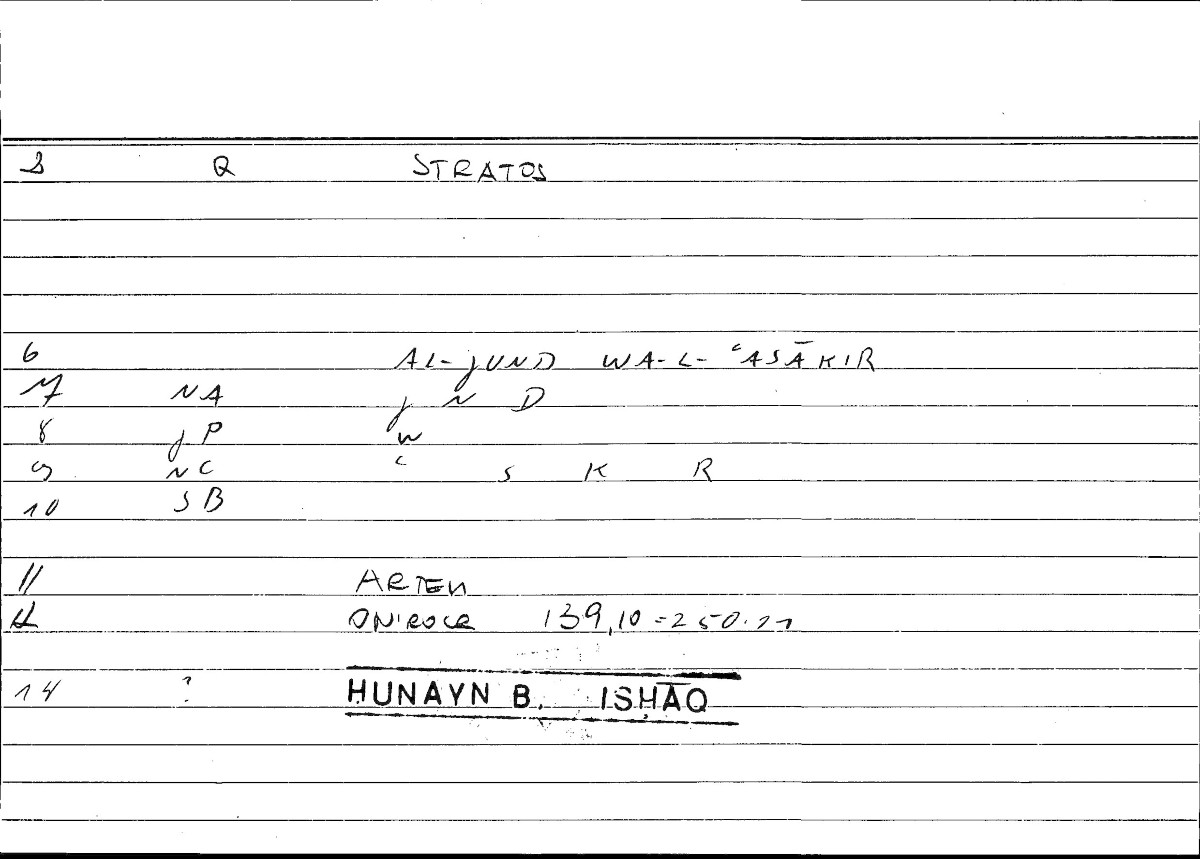 3 Q STRATOS
6 AL-jUND WA-L-ʿASĀKIR
7 NA j N D
8 jP w
9 NC ʿ S K R
10 SB
11 ARTEM
12 ONIROCR 139,10=250.11
14 ? ḤUNAYN B. ISḤĀQ